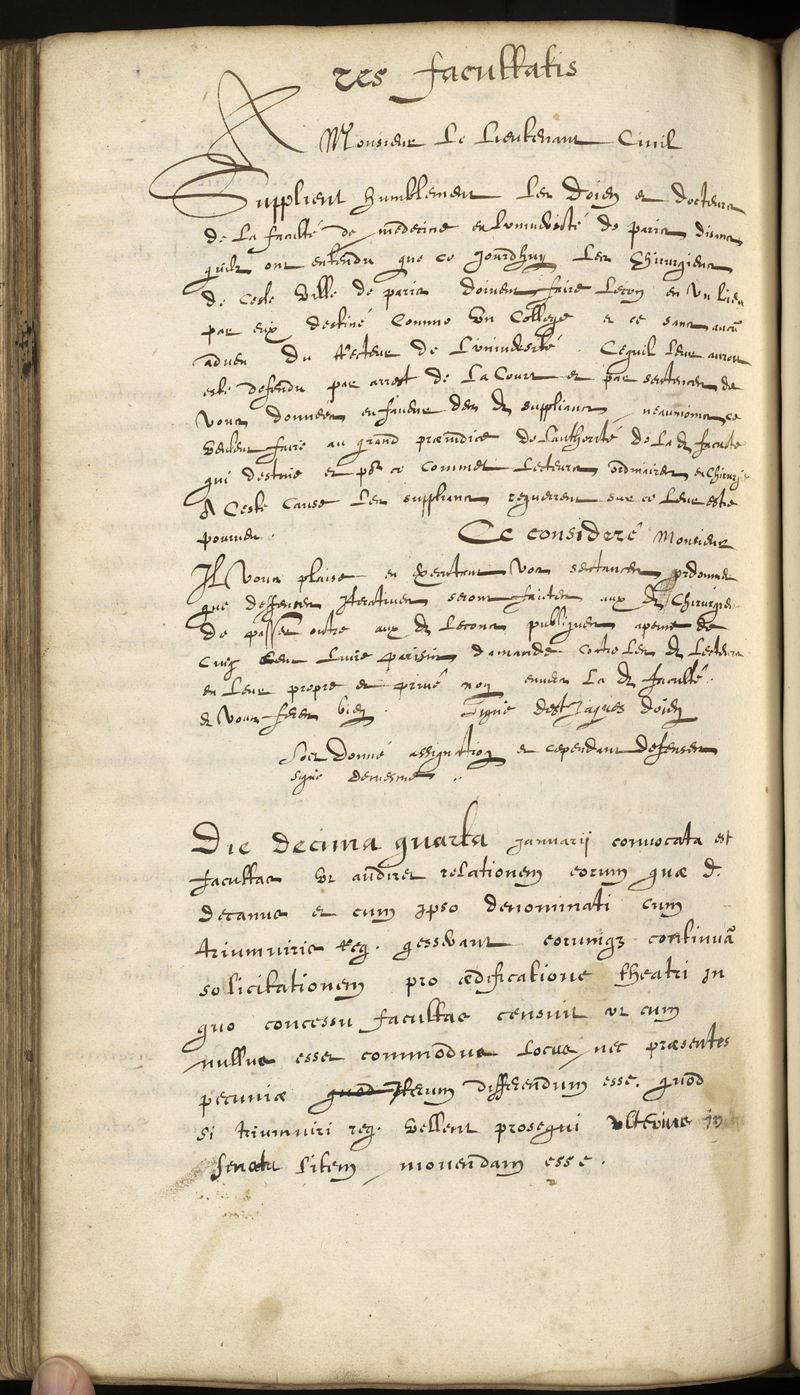 res facultatis
A Monsieur Le Lieutenant Civil
Supplient humblement Les Doien et docteurs
de La faculté de medecine en Luniversité de paris disans
quilz ont entendu que ce jourdhuy Les Chirurgiens
de Ceste Ville de paris doivent faire Leçon en Un lieu
par eux destiné Comme Un College et ce sans aucũ
adveu du Recteur de Luniversité. Cequil Leur auroit
esté defendu par arrest de La Court et par sentences de
Vous données en faveur des dz suppliants neaumoins ce
veulent faire au grand præiudice de Lauthorité de La dz faculte
qui destine et pᵒʳ ce commet Lecteurs ordinaires en Chirurgie
A Ceste Cause Les suppliants requerrent sur ce Leur estre
pourveu. Ce consideré Monsieur
Il Vous plaise en executant Vos sentences ordonner
que deffenses Iteratives seront faictes aux dz Chirurgiens
de passer outre aux dz Lecons publiques a peine de
Cinq cent Livre parisis damande contre Les dz Lecteurs
en Leur propre et privé nom envers La dz faculté.
et Vous ferez bien. Signé Des Jaques doien
Soit Donné assignation et cependant defenses
signé
Die decima quarta januarij convocata est
facultas Ut audiret relationem eorum quæ d.
decanus et cum ipso denominati cum
triumviris reg. gesserant eorumqz continuã
solicitationem pro ædificatione theatri in
quo concessu facultas censuit ut cum
nullus esset commodus Locus nec præsentes
pecuniæ quod Iterum differendum esse. quod
si triumviri reg. vellent prosequi ulterius in
senatu Litem movendam esse.